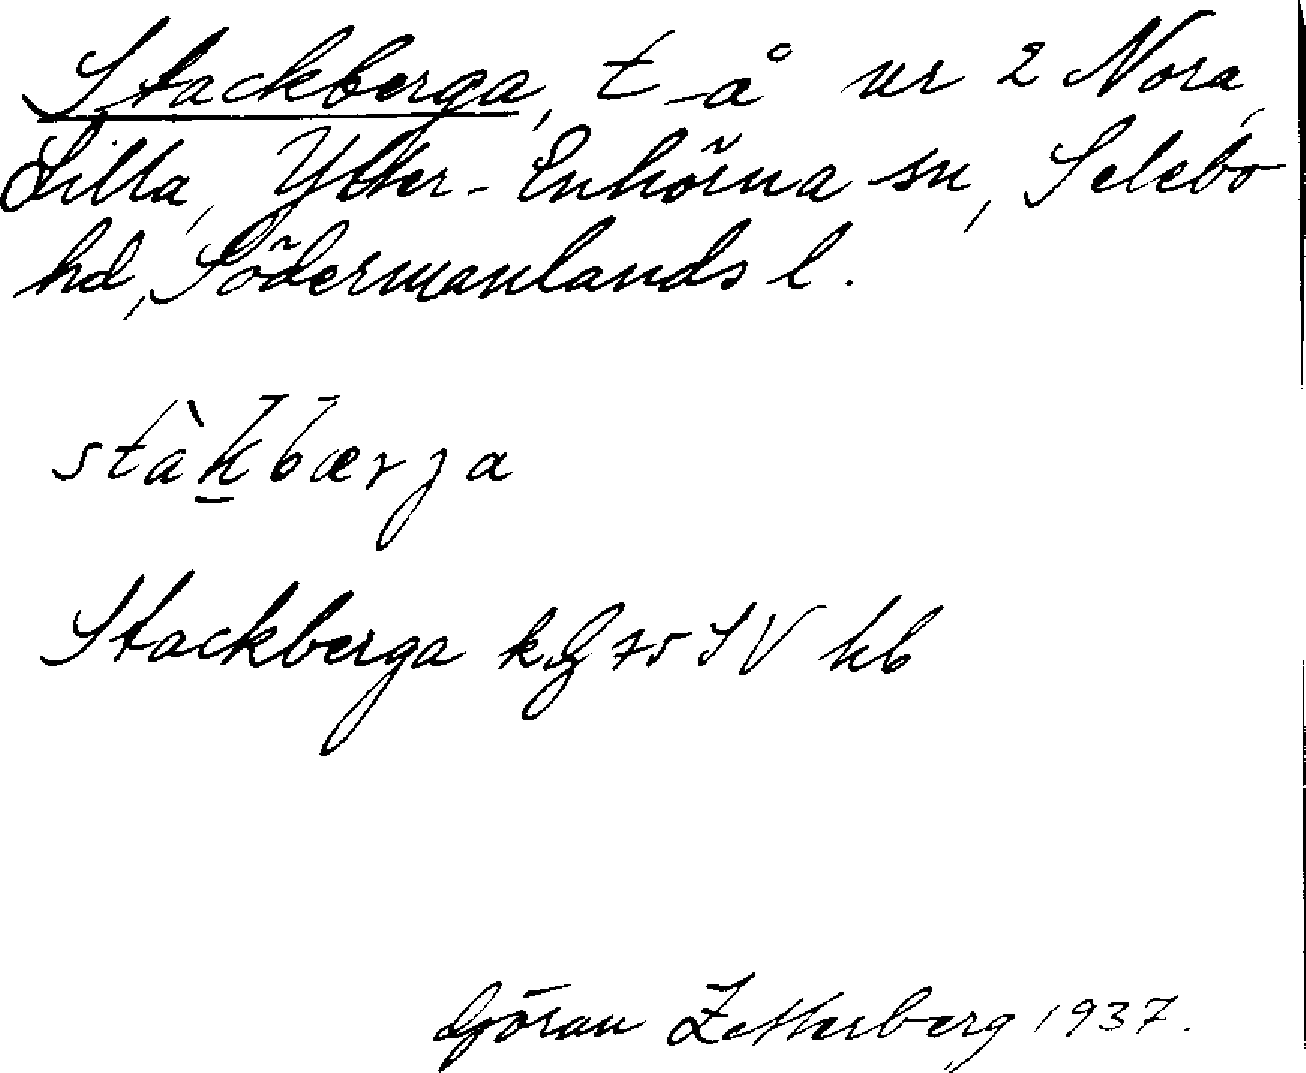 Stackberga, t å ur 2 Nora,
Lilla, Ytter-Enhörna sn, Selebo
hd, Södermanlands l.
stàkbærja
Stackberga k.G 75 SV hb
Göran Zetterberg 1937.